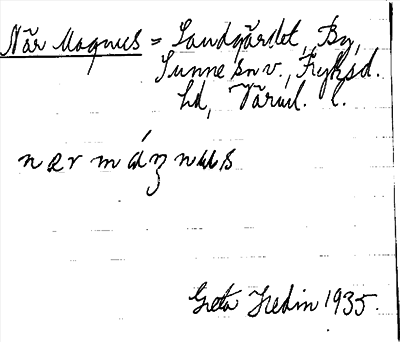 När Magnus = Sandgärdet, By,
Sunne sn v., Fryksd.
hd, Värml. l.
nær mágnus
Greta Hedin 1935.